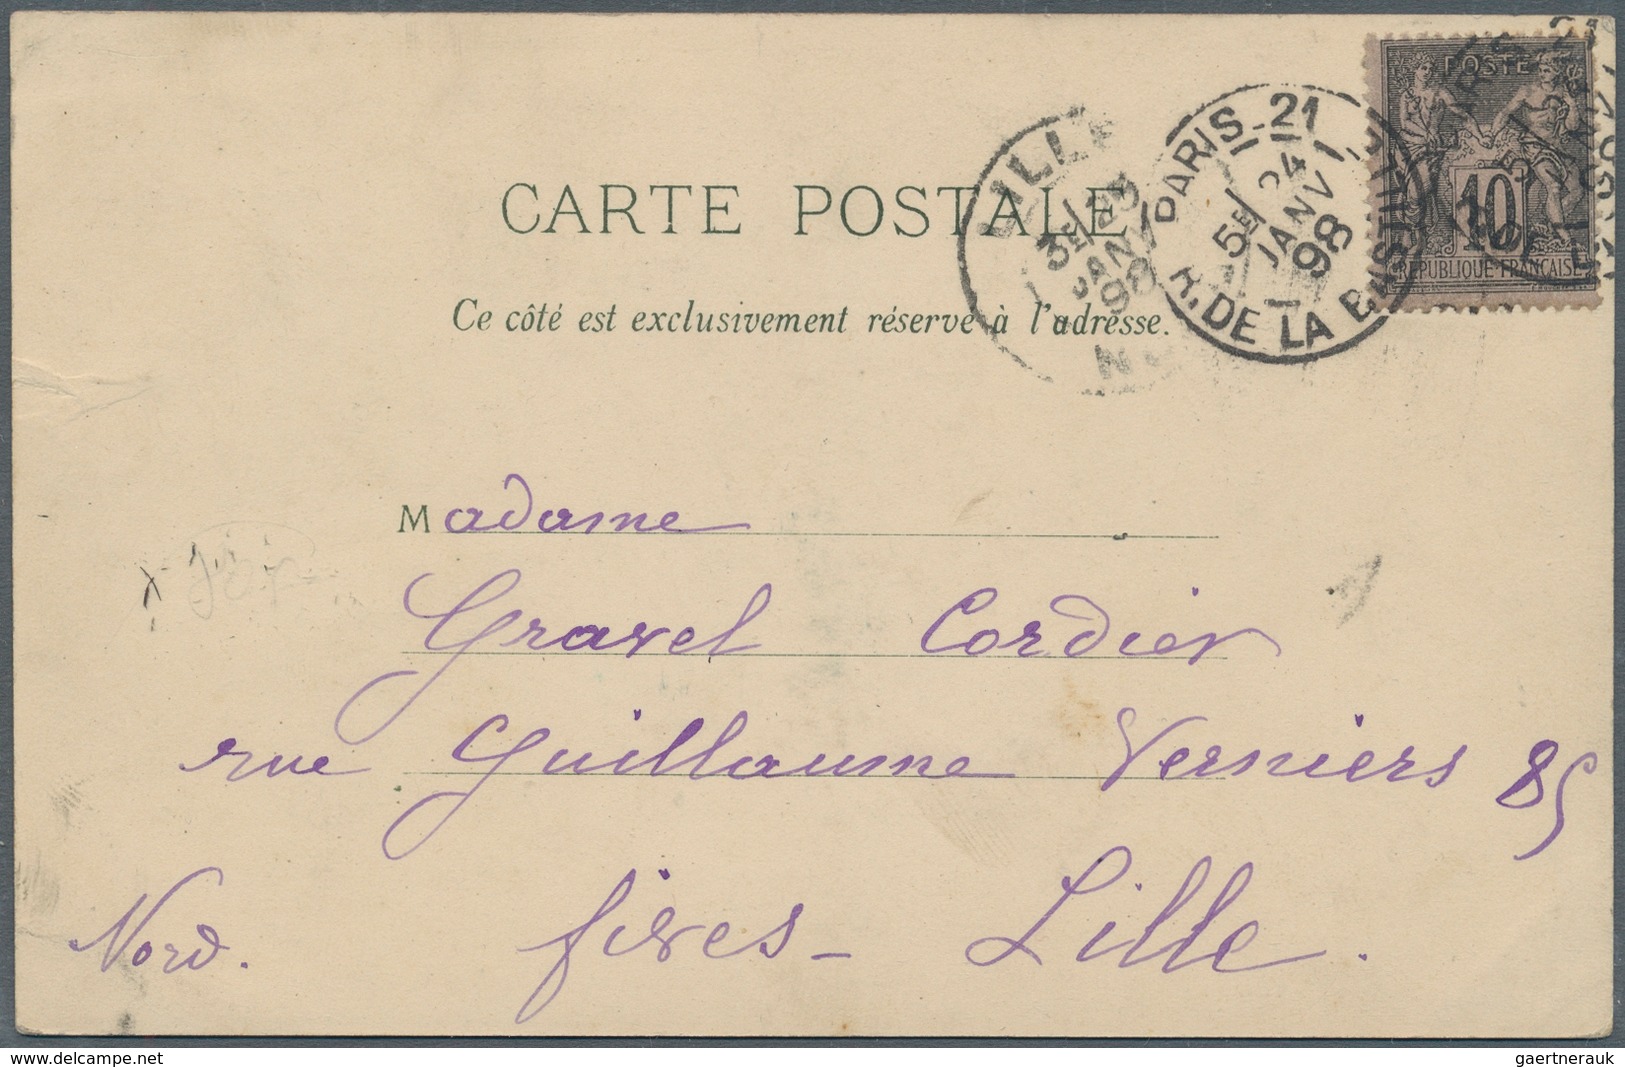 POSTE
10
REPUBLIQUE FRANÇAISE
PARIS_21
5E/ 24
JANV
98
R. DE LA
LILLE
3E/ 25
JANV
98
CARTE POSTALE
Ce côté est exclusivement réservé à l'adresse.
Madame
Gravel Cordier
rue Guillaume Verniers 85
Nord. fives - Lille.
www.delcampe.net
gaertnerauk